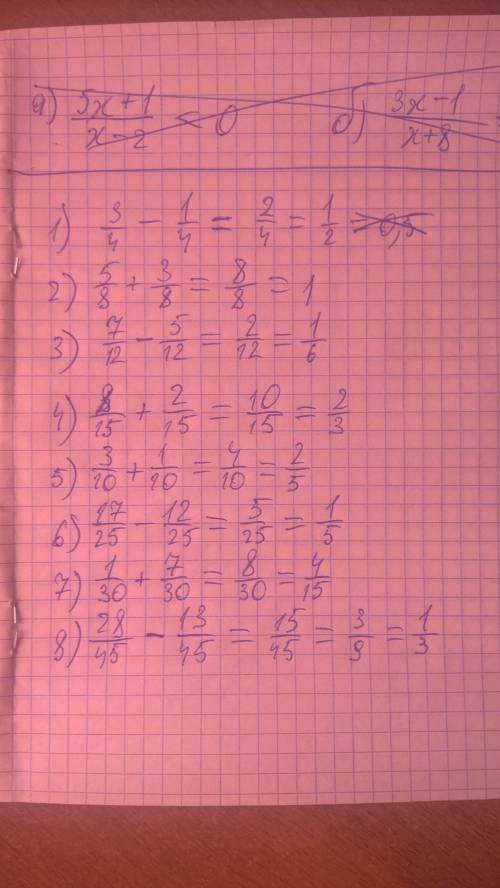 а) (5x+1)/(x-2) < 0 б) (3x-1)/(x+8)
1) 3/4 - 1/4 = 2/4 = 1/2 = 0,5
2) 5/8 + 3/8 = 8/8 = 1
3) 7/12 - 5/12 = 2/12 = 1/6
4) 8/15 + 2/15 = 10/15 = 2/3
5) 3/10 + 1/10 = 4/10 = 2/5
6) 17/25 - 12/25 = 5/25 = 1/5
7) 1/30 + 7/30 = 8/30 = 4/15
8) 28/45 - 13/45 = 15/45 = 3/9 = 1/3